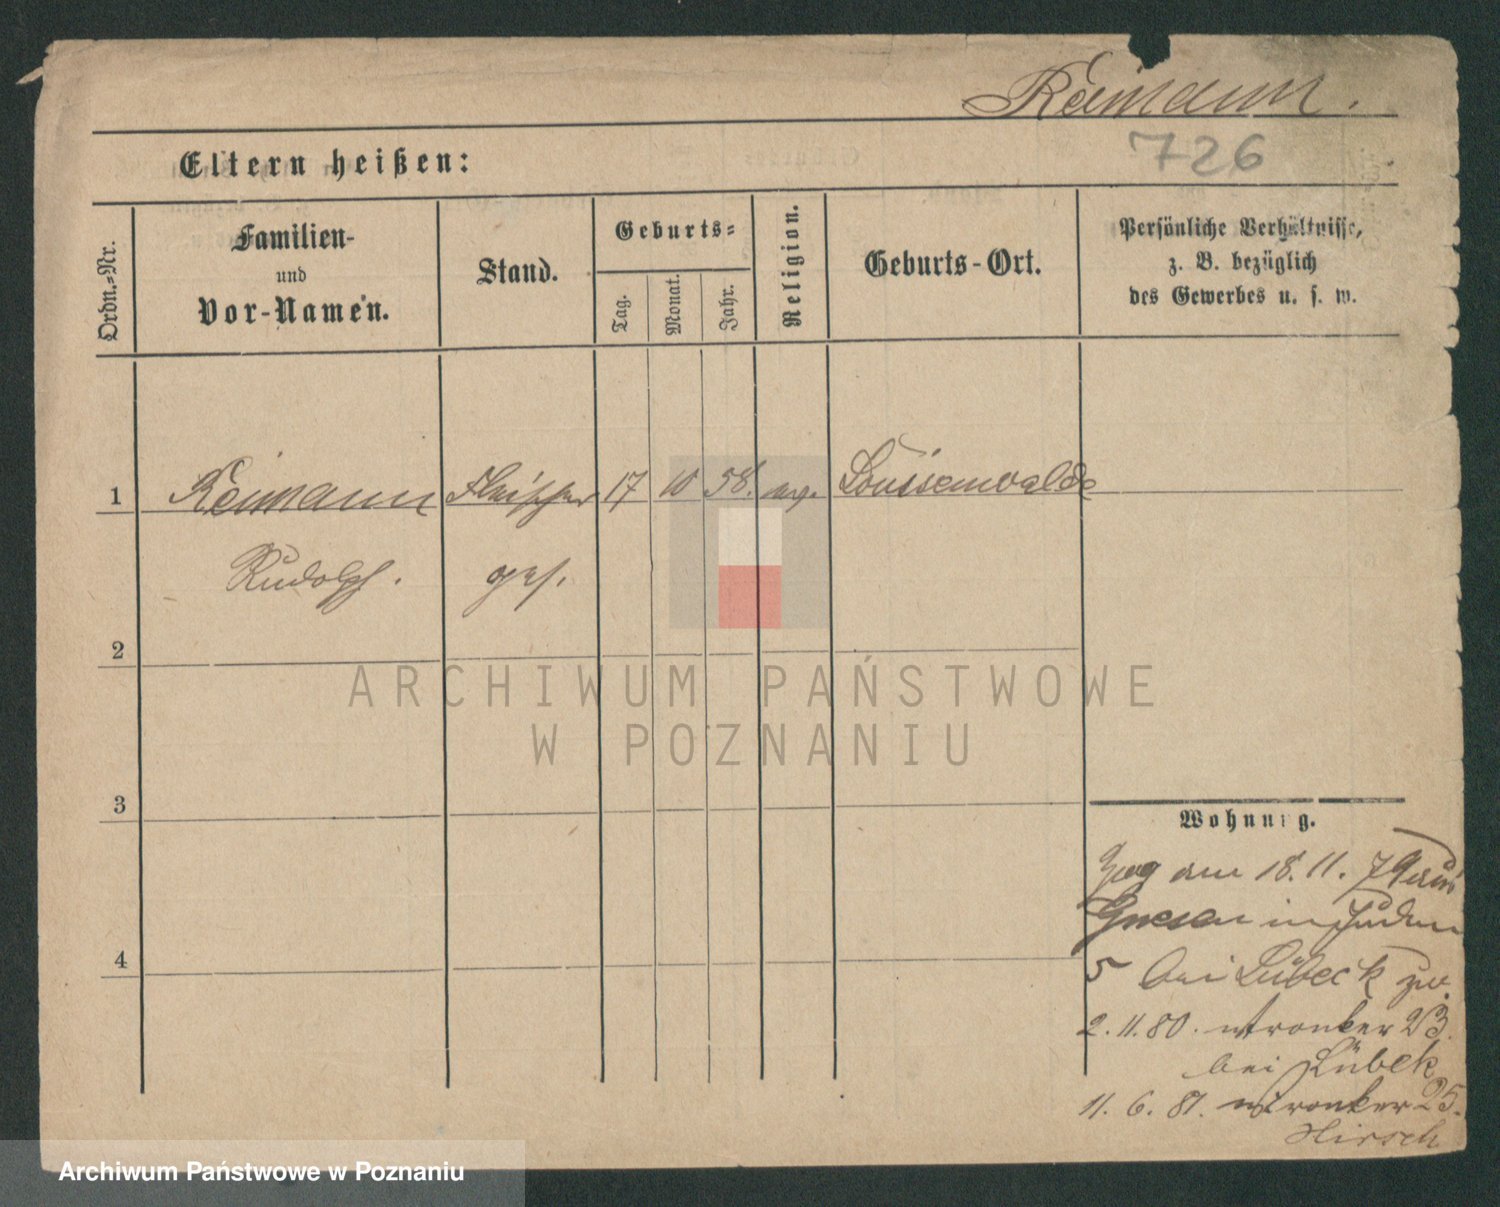 Reimann.
726
Eltern heißen:
Ordn.-Nr.
Familien-
und
Vor-Namen.
Stand.
Geburts-
Tag.
Monat.
Jahr.
Religion.
Geburts-Ort.
Persönliche Verhältnisse,
z. B. bezüglich
des Gewerbes u. s. w.
1 Reimann Fleischer 17 10 58. ev. Louisenwalde
Rudolph. ges.
2
3
4
Wohnung.
Zog am 18. 11. 79 aus
Gnesen in Juden
5 bei Lübeck zu.
2. 11. 80. Wronker 23.
bei Lübek
11. 6. 81. Wronker 25.
Hirsch
ARCHIWUM PAŃSTWOWE
W POZNANIU
Archiwum Państwowe w Poznaniu